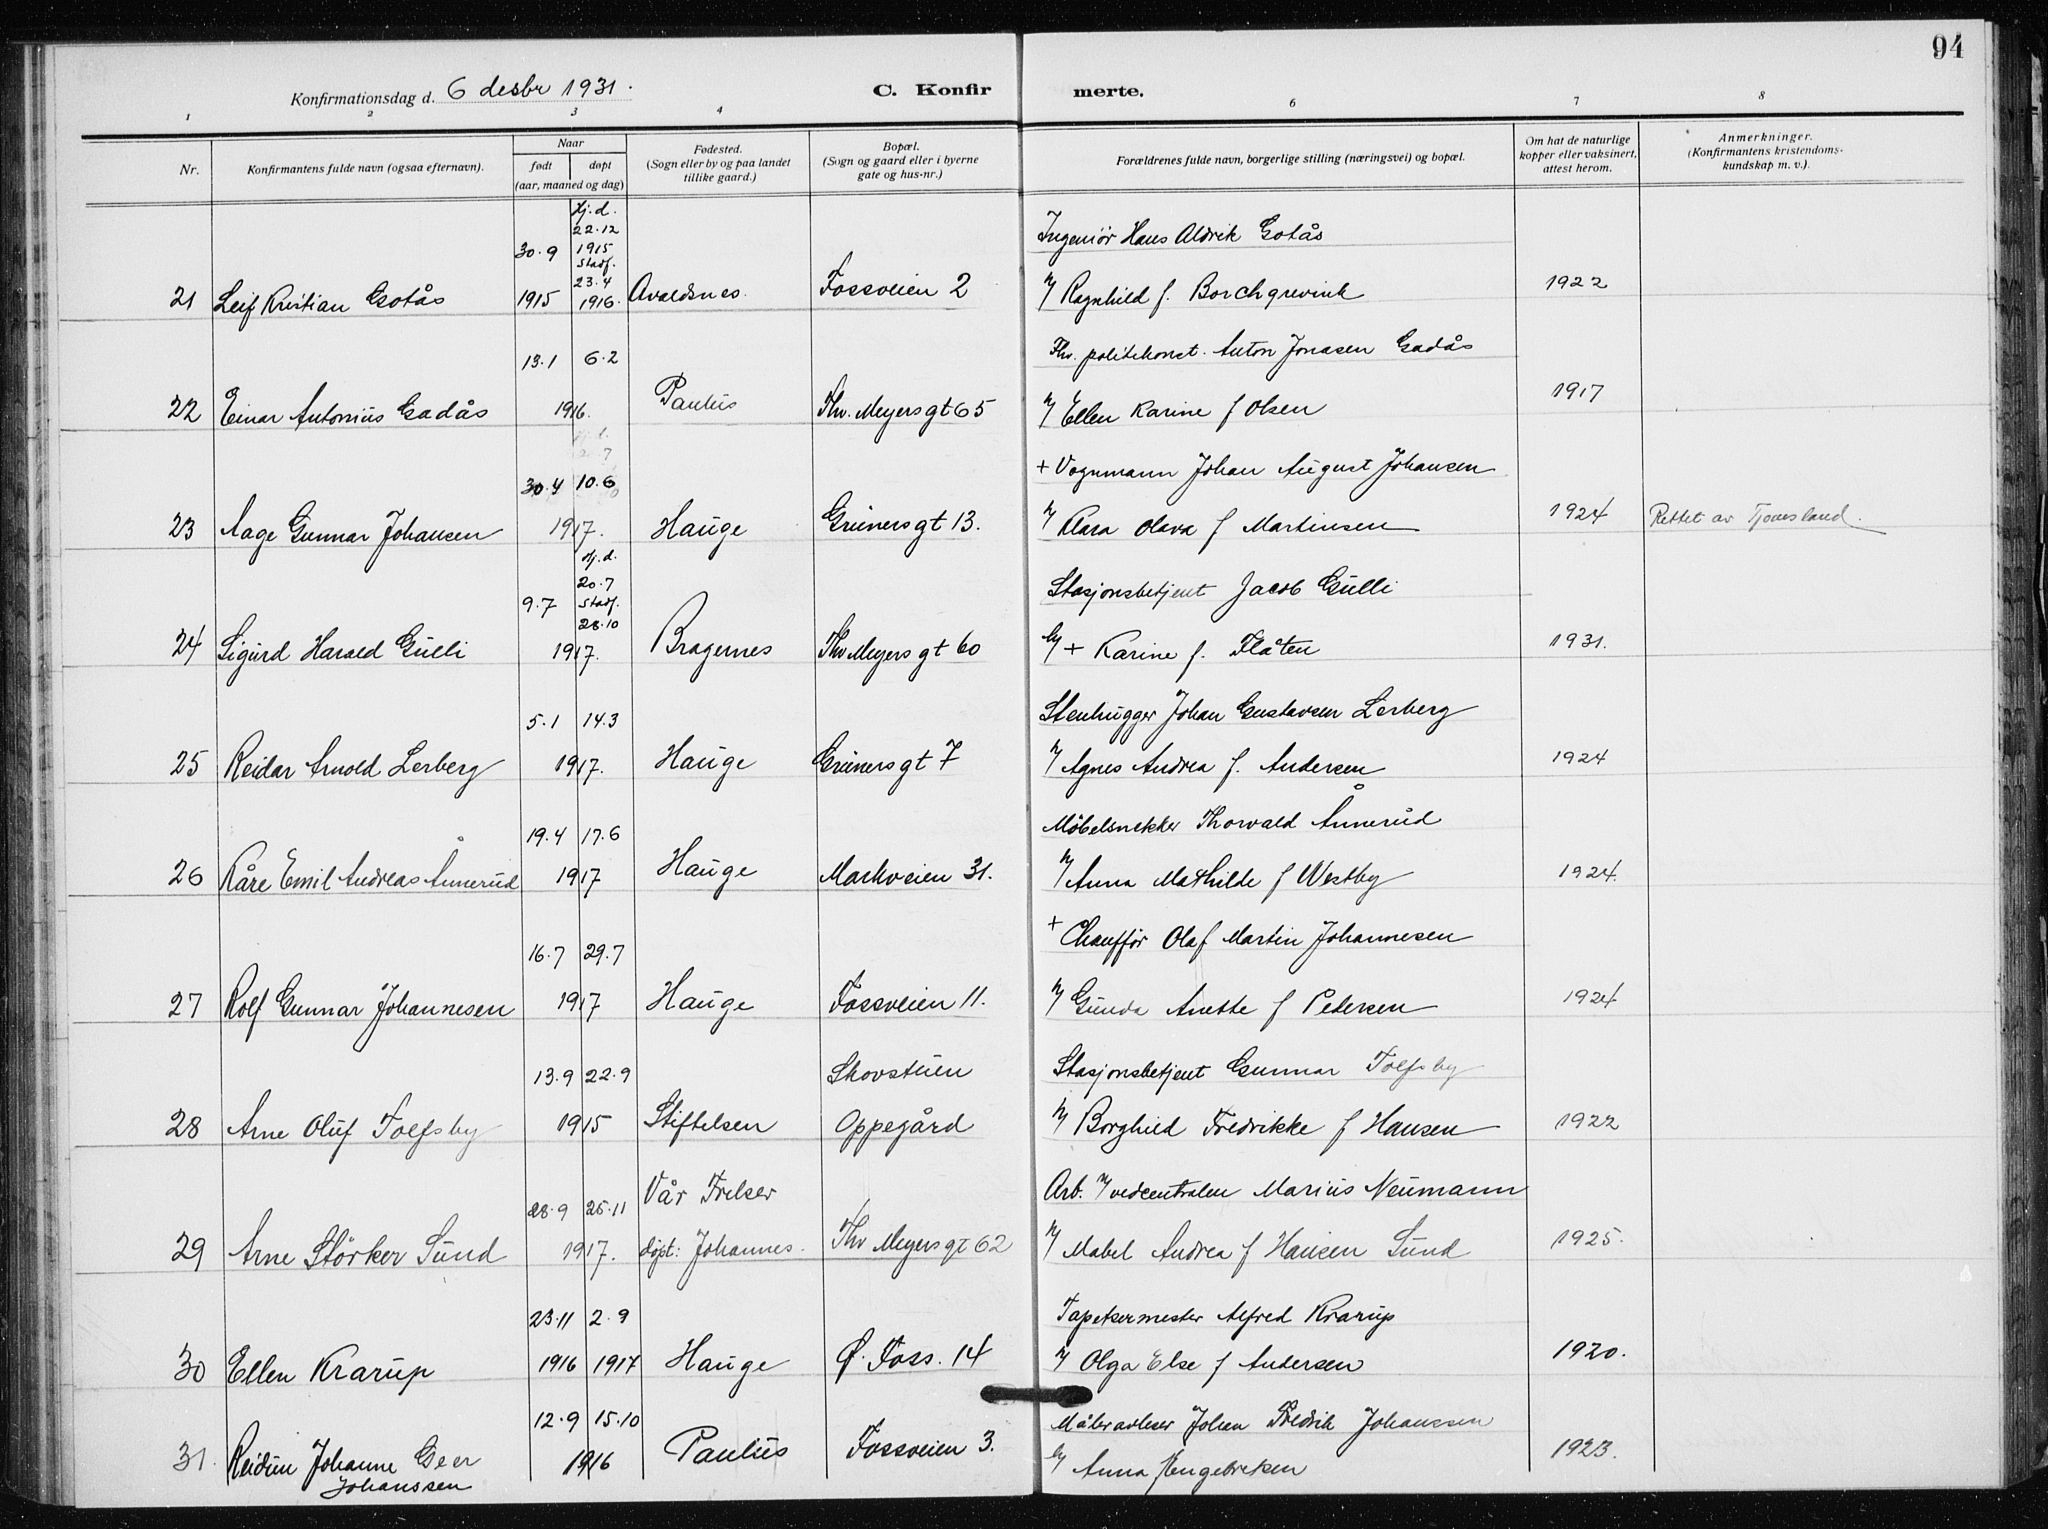 94
Konfirmationsdag d. 6 desbr 1931.
C. Konfir merte.
1 2 3 4 6 7 8
Nr.
Konfirmantens fulde navn (ogsaa efternavn).
Naar
født døpt
(aar, maaned og dag)
Fødested.
(Sogn eller by og paa landet
tillike gaard.)
Bopæl.
(Sogn og gaard eller i byerne
gate og hus-nr.)
Forældrenes fulde navn, borgerlige stilling (næringsvei) og bopæl.
Om hat de naturlige
kopper eller vaksinert,
attest herom.
Anmerkninger.
(Konfirmantens kristendoms-
kundskap m. v.).
hj.d.
22.12
30.9 1915 Ingeniør Hans Aldrik Gotås
stadf.
23.4
21 Leif Kristian Gotås 1915 1916. Avaldsnes. Fossveien 2 Ragnhild f. Borchgrevink 1922
13.1 6.2 Fhv. politikonst. Anton Jonasen Gadås
22 Einar Antonius Gadås 1916. Paulus Thv. Meyersgt 65 Ellen Karine f Olsen 1917
30.4 10.6 + Vognmann Johan August Johansen
23 Aage Gunnar Johansen 1917. Hauge Grünersgt 13. Klara Olava f Martinsen 1924 Rettet av Tjomsland.
hj.d.
20.7
9.7 stadf. Stasjonsbetjent Jacob Gulli
28.10
24 Sigurd Harald Gulli 1917. Bragernes Thv Meyersgt 60 + Karine f. Flåten 1931.
5.1 14.3 Stenhugger Johan Gustavsen Lerberg
25 Reidar Arnold Lerberg 1917. Hauge Grünersgt 7 Agnes Andrea f. Andersen 1924
19.4 17.6 Møbelsnekker Thorvald Ånnerud
26 Kåre Emil Andreas Ånnerud 1917 Hauge Markveien 31. Anna Mathilde f Westby 1924.
16.7 29.7 + Chauffør Olaf Martin Johannesen
27 Rolf Gunnar Johannesen 1917 Hauge Fossveien 11. Gunda Anette f Pedersen 1924
13.9 22.9 Skovstuen Stasjonsbetjent Gunnar Tolfsby
28 Arne Oluf Tolfsby 1915 Stiftelsen Oppegård Borghild Fredrikke f Hansen 1922
28.9 25.11 Vår Frelser Arb. vedcentralen Marius Neumann
29 Arne Störker Sund 1917. døpt: Johannes. Thv Meyersgt 62 Mabel Andrea f Hansen Sund 1925.
23.11 2.9 Tapetsermester Alfred Krarup
30 Ellen Krarup 1916 1917 Hauge Ø. Foss. 14 Olga Else f Andersen 1920.
12.9 15.10 Måleravleser Johan Fredrik Johanssen
31. Reidun Johanne Geer 1916 Paulus Fossveien 3. Anna f Engebretsen 1923.
Johanssen